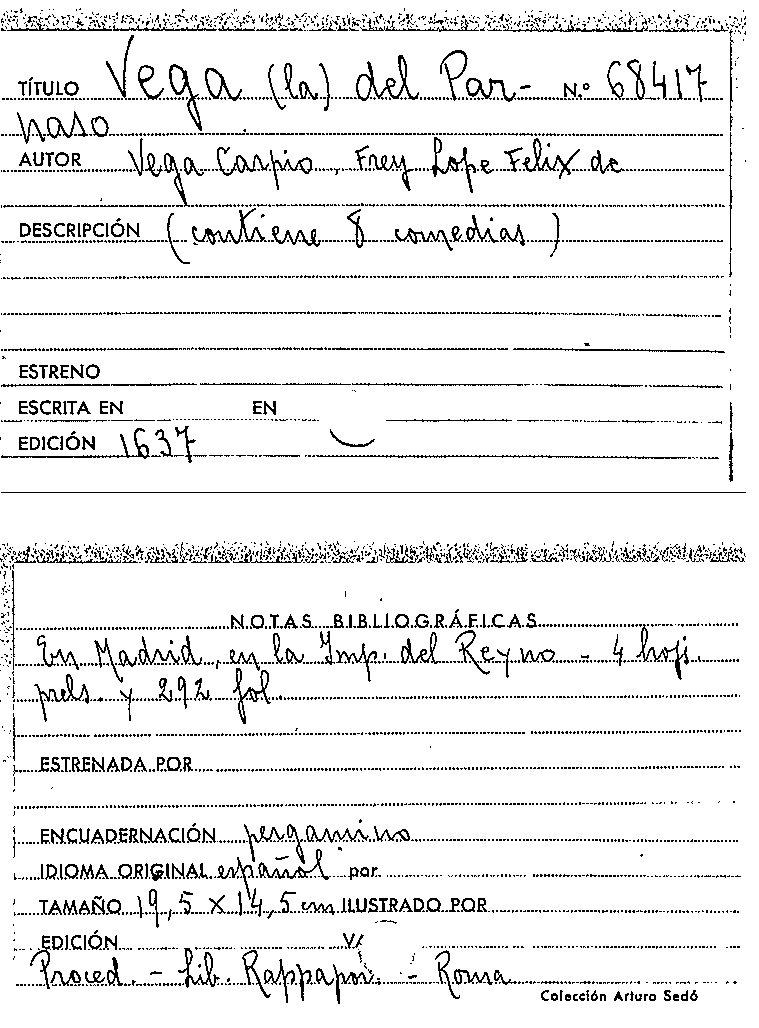 TÍTULO Vega (la) del Par- N.º 68417
naso
AUTOR Vega Carpio, Frey Lope Felix de
DESCRIPCIÓN (contiene 8 comedias)
ESTRENO
ESCRITA EN EN
EDICIÓN 1637
NOTAS BIBLIOGRÁFICAS
En Madrid, en la Imp. del Reyno - 4 hojs.
prels. y 292 fol.
ESTRENADA POR
ENCUADERNACIÓN pergamino
IDIOMA ORIGINAL español por
TAMAÑO 19,5 X 14,5 cm ILUSTRADO POR
EDICIÓN
Proced. - Lib. Rappapor. - Roma
Colección Arturo Sedó